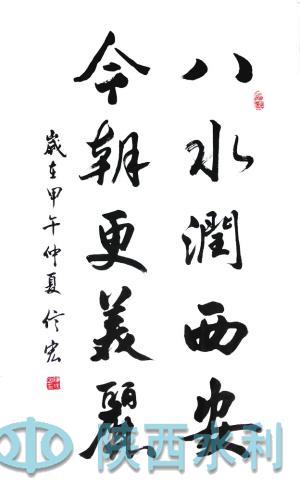 八水潤西安
今朝更美麗
歲在甲午仲夏 信宏
陕西水利